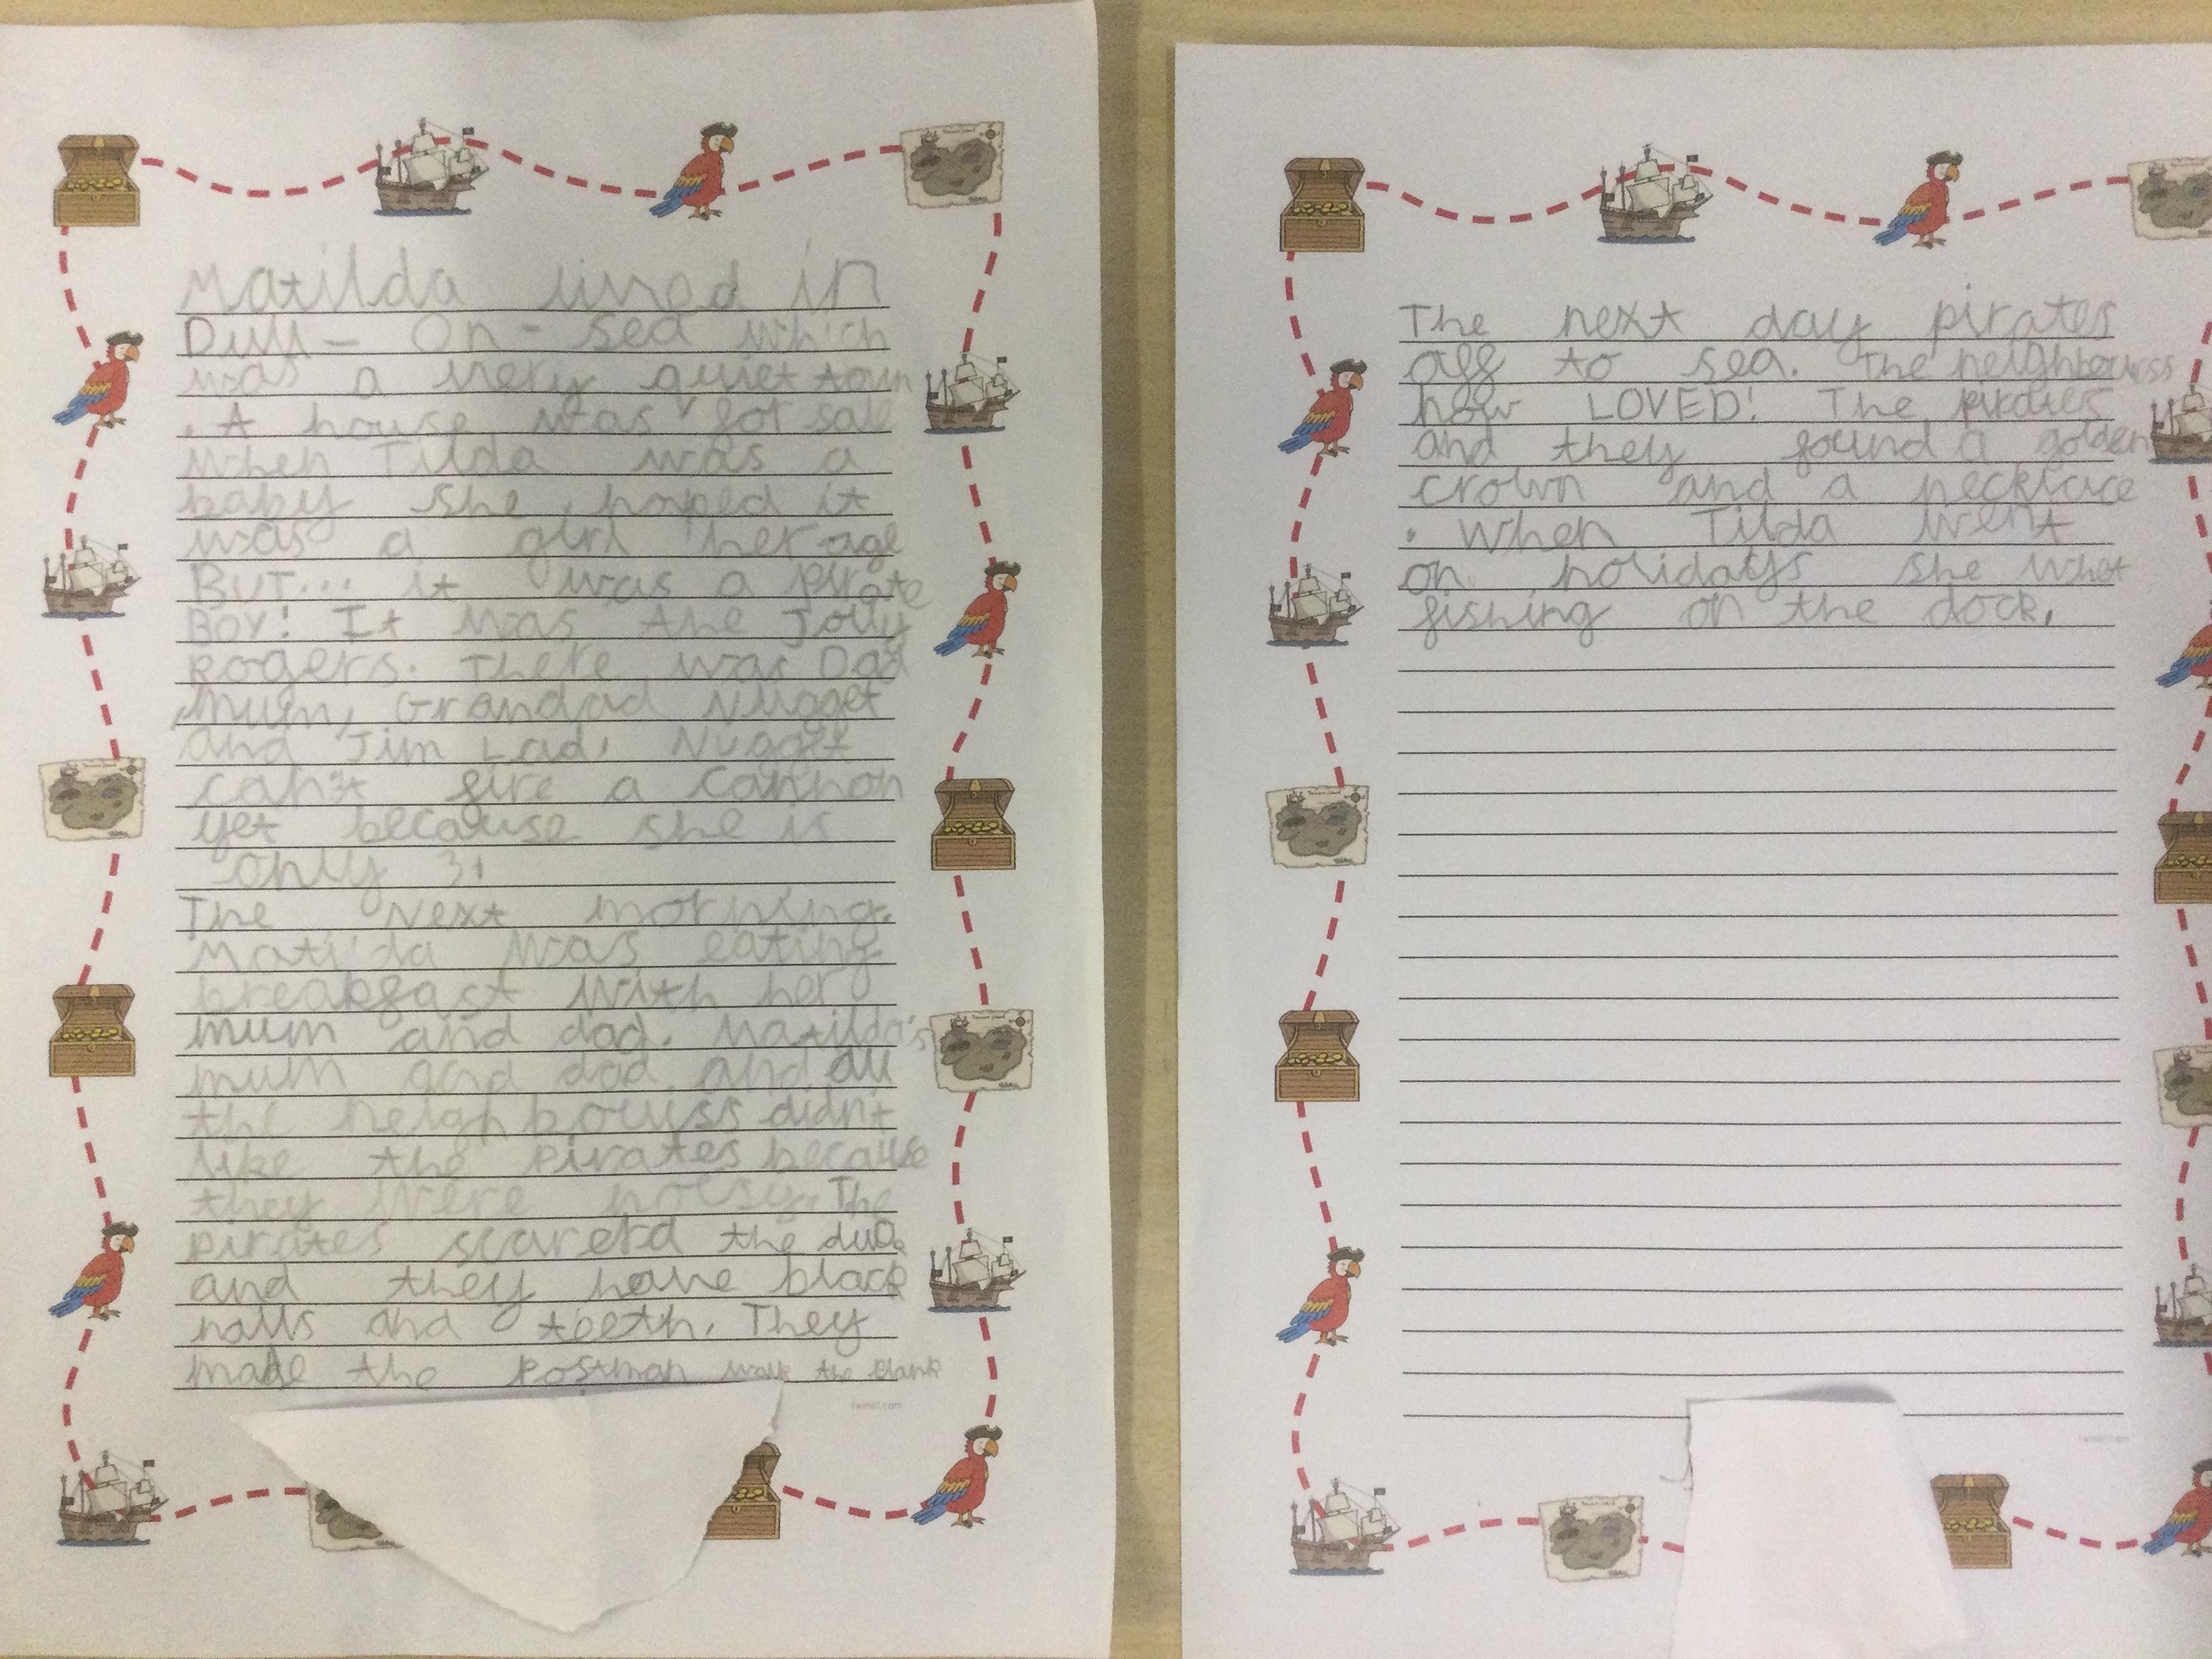 Matilda lived in
Dull - On - sea which
was a very quiet town
. A house was for sale
when Tilda was a
baby she hoped it
was a girl her age
BUT... it was a pirate
BOY! It was the Jolly
Rogers. There was Dad
Mum, Grandad Nugget
and Jim Lad. Nugget
can't fire a cannon
yet because she is
only 3.
The Next morning.
Matilda was eating
breakfast with her
mum and dad. Matilda's
mum and dad and all
the neighbouiss didn't
like the pirates because
they were noisy. The
pirates scaretd the
and they have black
nails and teeth. They
made the Postman walk the plank
twinkl.com
The next day pirates
off to sea. The neighbouriss
now LOVED! The pirates
and they found a golden
crown and a necklace
. When Tilda went
on holidays she whet
fishing on the dock.